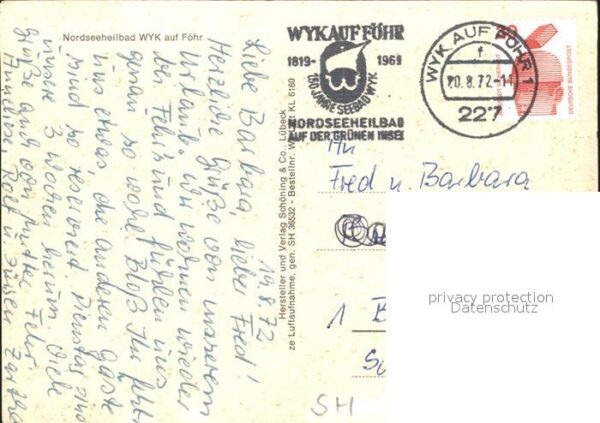 Nordseeheilbad WYK auf Föhr
14.8.72
Liebe Barbara, lieber Fred!
Herzliche Grüße von unserem
Urlaub. Wir wohnen wieder
bei Fehr und fühlen uns
genau so wohl. Bloß Ihr fehlt
uns etwas, die anderen Gäste
sind so reserviert. Dienstag sind
unsere 3 Wochen herum. Viele
Grüße auch von Fehr
Anneliese, Rolf u. Jürgen
Hersteller und Verlag Schöning & Co., Lübeck
ze Luftaufnahme, gen. SH 36532 - Bestellnr. Wy KL 6160
WYK AUF FÖHR
1819- 1969
150 JAHRE SEEBAD WYK
NORDSEEHEILBAD
AUF DER GRÜNEN INSEL
WYK AUF FÖHR 1
f
20.8.72-11
227
DEUTSCHE BUNDESPOST
An
Fred u. Barbara
1 B
SH
privacy protection
Datenschutz